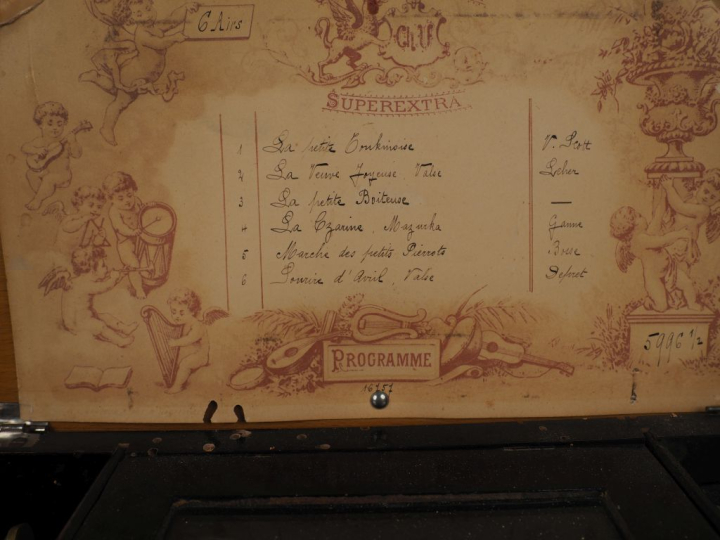 6 Airs
SUPEREXTRA
1 La petite Tonkinoise V. Scott
2 La Veuve Joyeuse, Valse Leher
3 La petite Boiteuse —
4 La Czarine, Mazurka Ganne
5 Marche des petits Pierrots Bosc
6 Sourire d'Avril, Valse Depret
5996 1/2
PROGRAMME